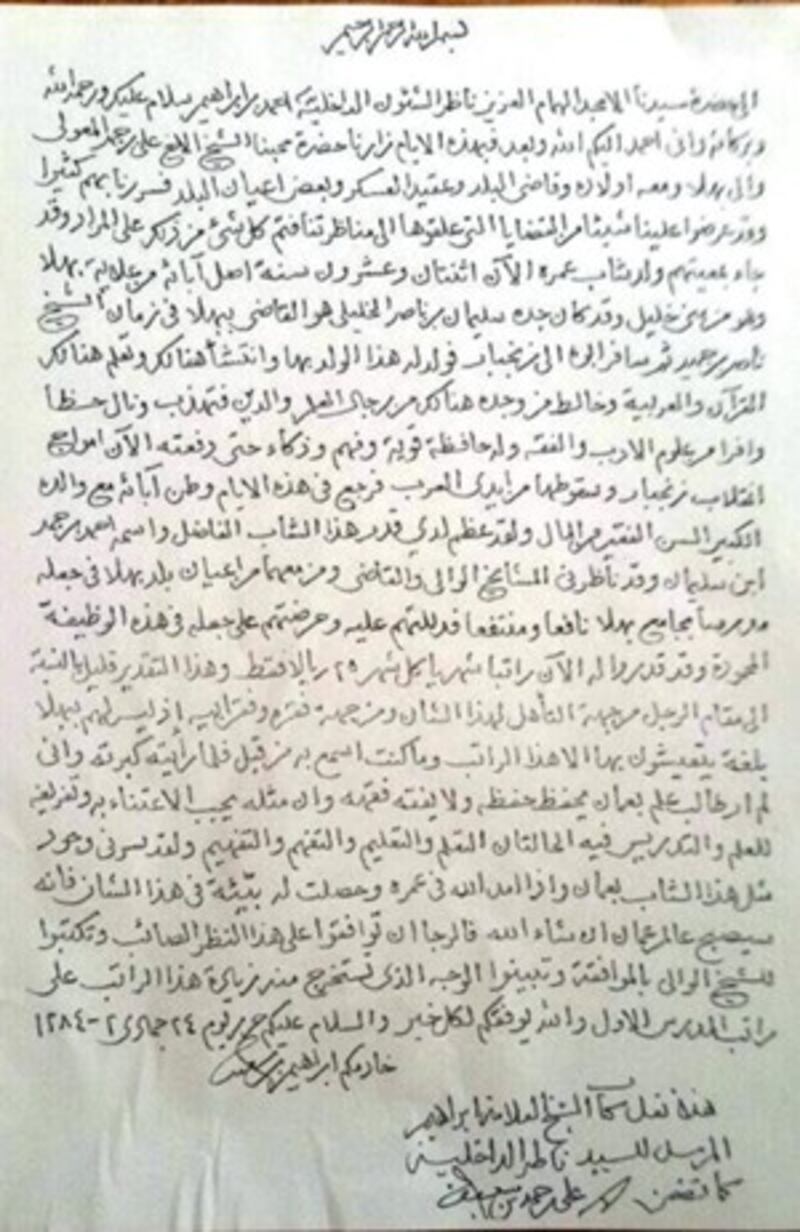 بسم الله الرحمن الرحيم
الى حضرة سيدنا الامجد الهمام العزيز ناظر الشئون الداخلية احمد بن ابراهيم سلام عليكم ورحمة الله
وبركاته واني احمد اليكم الله وبعد فبهذه الايام زارنا حضرة محبنا الشيخ الاخ علي بن حمد المعولى
والى بهلا ومعه اولاده وقاضى البلد وعقيد العسكر وبعض اعيان البلد فسررنا بهم كثيرا
وقد عرضوا علينا شيئا من القضايا التى علقوها الى مناظرتنا فتم كل شئ من ذلك على المراد وقد
جاء بمعيتهم ولد شاب عمره الآن اثنتان وعشرون سنة اصل آبائه من بهلا
وهو من بنى خليل وقد كان جده سليمان بن ناصر الخليلى هو القاضى ببهلا فى زمان الشيخ
ناصر بن حميد ثم سافر ابوه الى زنجبار فولد له هذا الولد بها وانتشأ هنالك وتعلم هنالك
القرآن والعربية وخالط من وجده هنالك من رجال العلم والدين فتهذب ونال حظاً
وافرا من علوم الادب والفقه وله حافظة قوية وفهم وذكاء حتى دفعته الآن امواج
انقلاب زنجبار وسقوطها من ايدى العرب فرجع فى هذه الايام وطن آبائه مع والده
الكبير السن الفقير من المال ولقد عظم لدي قدر هذا الشاب الفاضل واسمه احمد بن حمد
ابن سليمان وقد ناظرنى المشايخ الوالى والقاضى ومن معهما من اعيان بلد بهلا فى جعله
مدرساً بجامع بهلا نافعا ومنتفعا فدللتهم عليه وحرضتهم على جعله فى هذه الوظيفة
وقد قدروا له الآن راتبا شهريا كل شهر ٢٥ ريالا فقط وهذا التقدير قليل بالنسبة
الى مقام الرجل من جهة التأهل لهذا الشان ومن جهة فقره وفقر ابيه اذ ليس لهم ببهلا
بلغة يتعيشون بها الا هذا الراتب وما كنت اسمع به من قبل فلما رأيته كبرته وانى
لم ار طالب علم بعمان يحفظ حفظه ولا يفقه فقهه وان مثله يجب الاعتناء به وتفريغه
للعلم والتدريس فيه الحالتان التعلم والتعليم والتفهم والتفهيم ولقد سرنى وجود
مثل هذا الشاب بعمان واذا امد الله فى عمره وحصلت له بيئة فى هذا الشان فانه
سيصبح عالم عمان ان شاء الله فالرجا ان توافقوا على هذا النظر الصائب وتكتبوا
للشيخ الوالى بالموافقة وتبينوا الوجه الذى تستخرج منه زيادة هذا الراتب على
راتب المدرس الاول والله يوفقكم لكل خير والسلام عليكم حرر يوم ٢٤ جمادى ٢ - ١٢٨٤
خادمكم ابراهيم بن سعيد
هذا نقل كتاب الشيخ العلامة ابراهيم
المرسل للسيد ناظر الداخلية
كما تضمن علي بن حمد